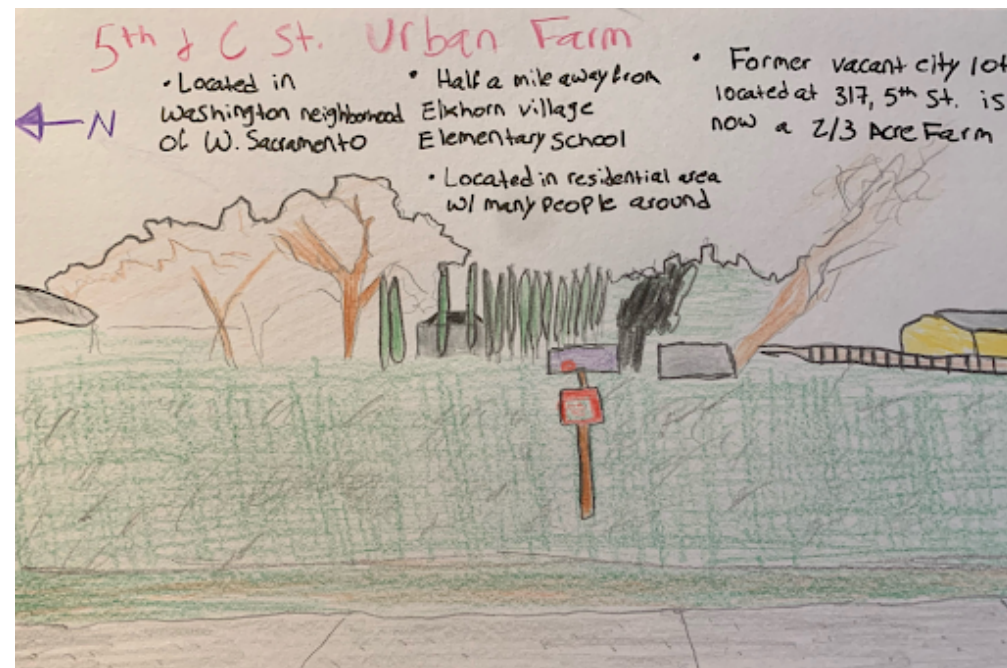 5th & C St. Urban Farm
N
• Located in
Washington neighborhood
of W. Sacramento
• Half a mile away from
Elkhorn village
Elementary School
• Located in residential area
w/ many people around
• Former vacant city lot
located at 317, 5th St. is
now a 2/3 Acre Farm